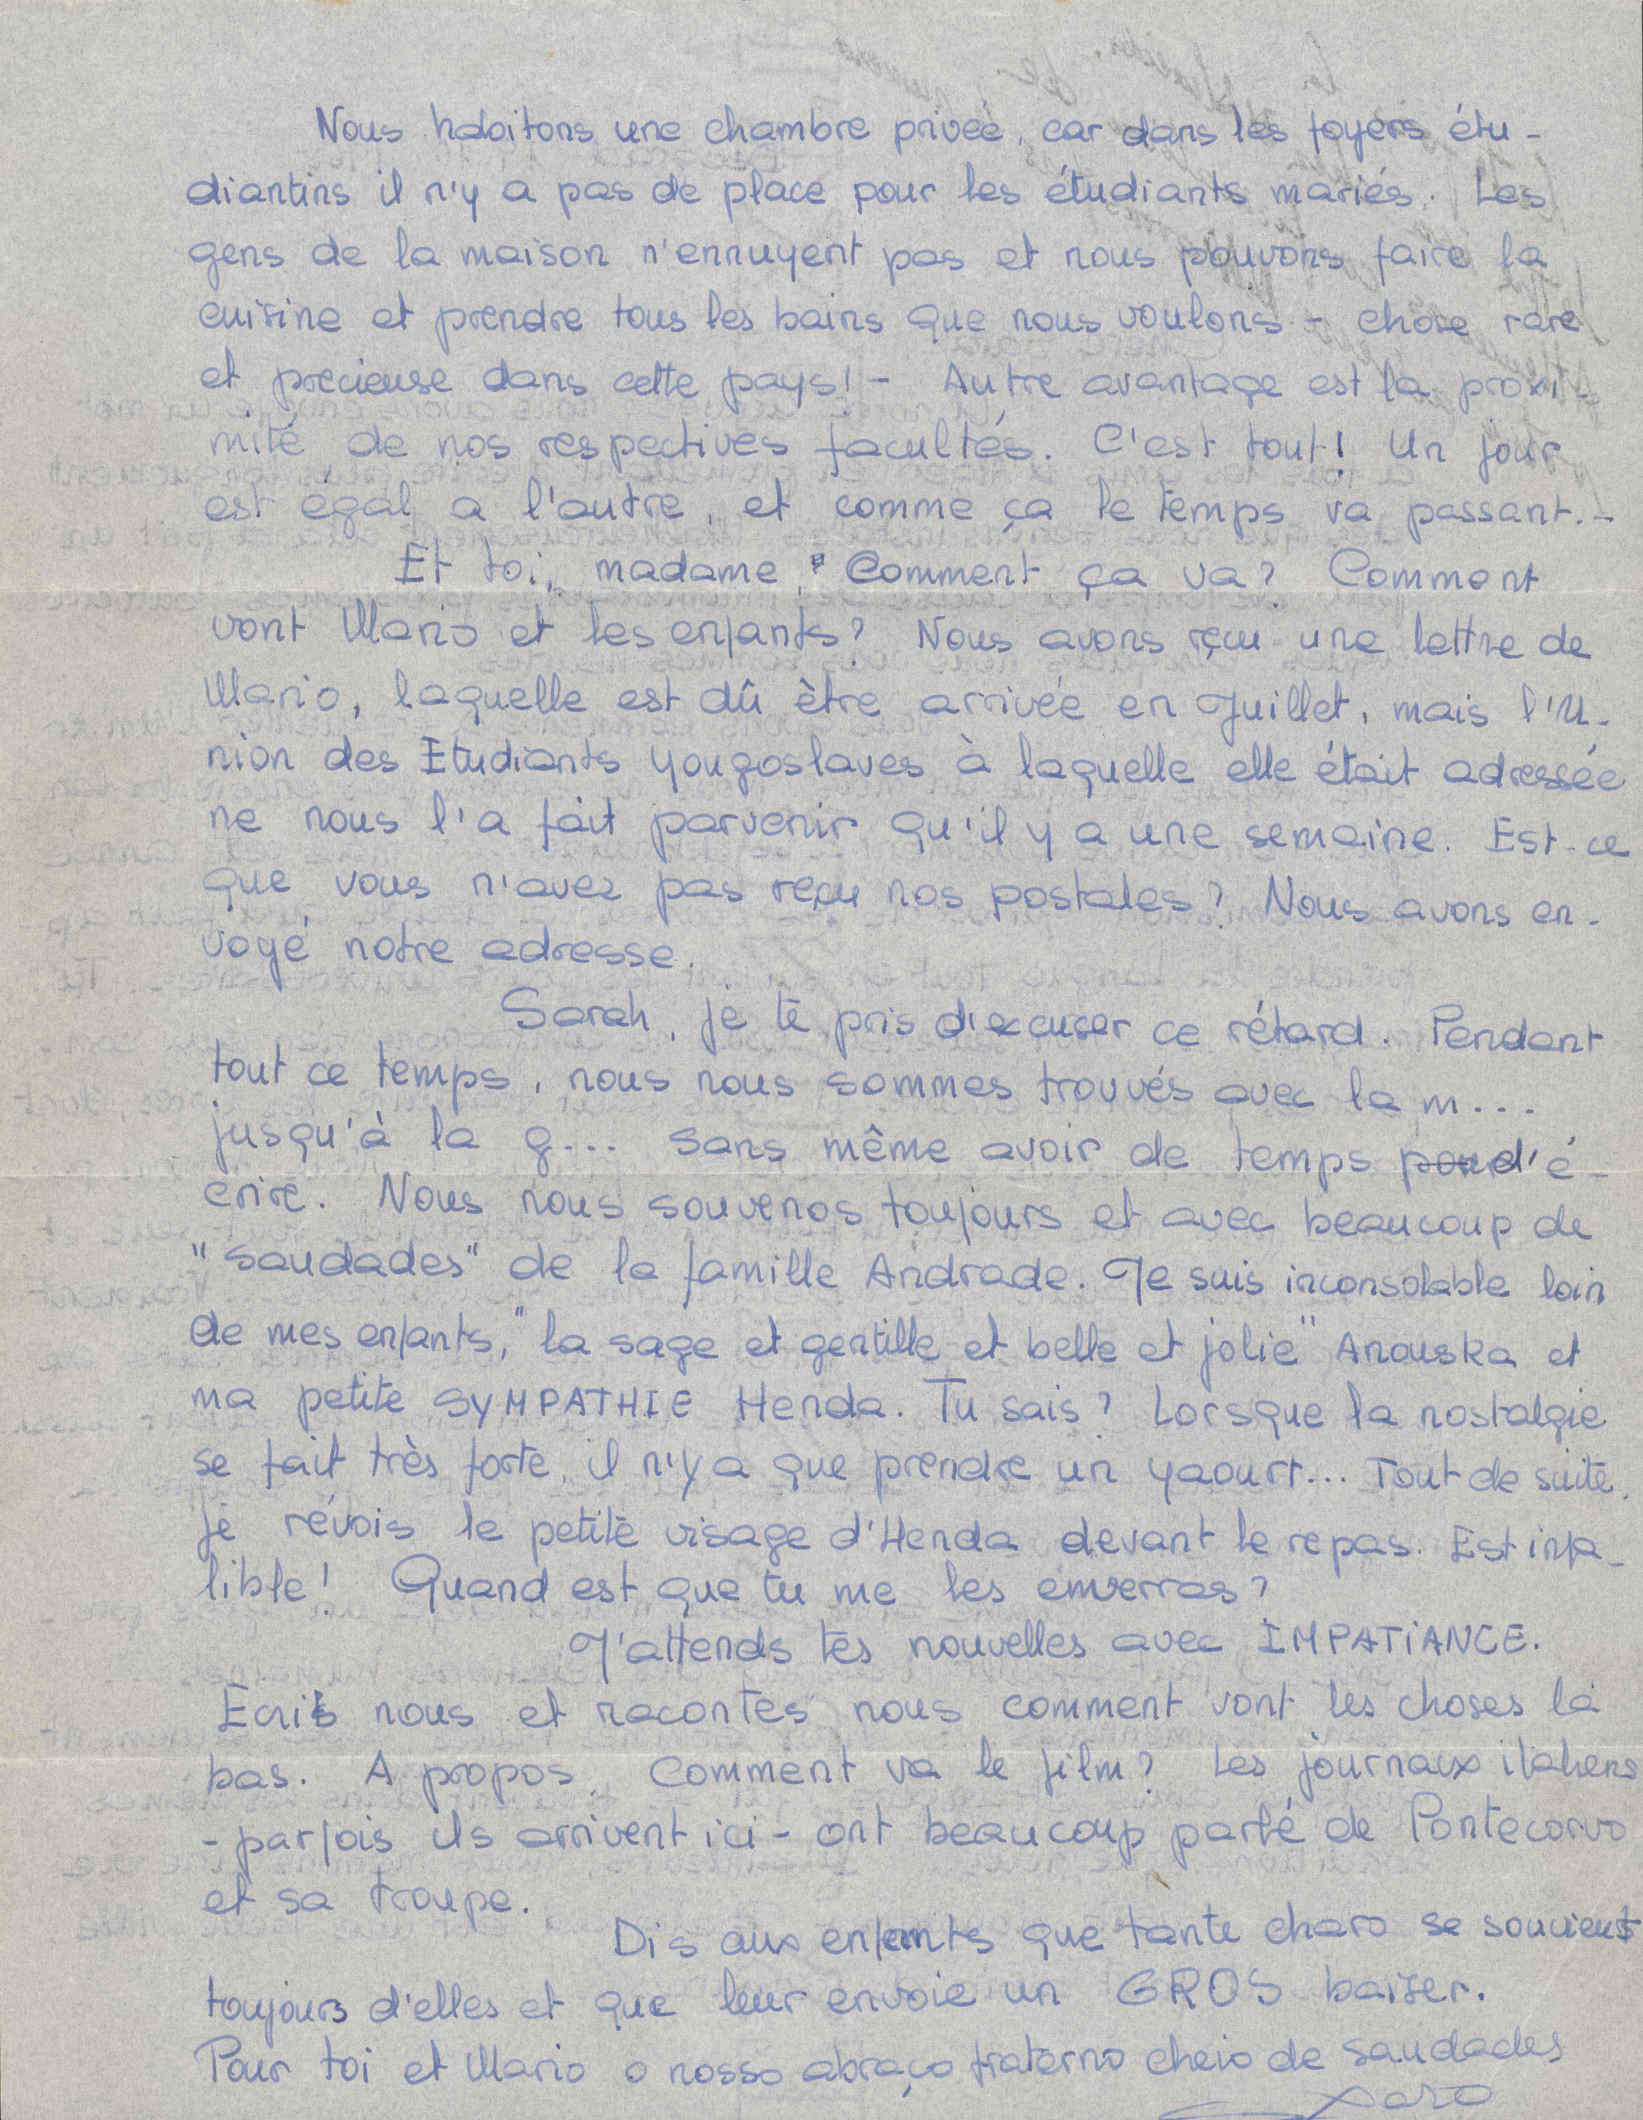 Nous habitons une chambre privée, car dans les foyers étu-
diantins il n'y a pas de place pour les étudiants mariés. Les
gens de la maison n'ennuyent pas et nous pouvons faire la
cuisine et prendre tous les bains que nous voulons - chose rare
et precieuse dans cette pays! - Autre avantage est la proxi-
mité de nos respectives facultés. C'est tout! Un jour
est égal a l'autre, et comme ça le temps va passant. -
Et toi, madame, Comment ça va? Comment
vont Mario et les enfants? Nous avons reçu une lettre de
Mario, laquelle est dû être arrivée en Juillet, mais l'U-
nion des Etudiants yougoslaves à laquelle elle était adressée
ne nous l'a fait parvenir qu'il y a une semaine. Est-ce
que vous n'avez pas reçu nos postales? Nous avons en-
voyé notre adresse.
Sarah, je te pris d'excuser ce rétard. Pendant
tout ce temps, nous nous sommes trouvés avec la m...
jusqu'à la g... sans même avoir de temps d'é-
crire. Nous nous souvenos toujours et avec beaucoup de
"saudades" de la famille Andrade. Je suis inconsolable loin
de mes enfants, "la sage et gentille et belle et jolie" Anouska et
ma petite SYMPATHIE Henda. Tu sais? Lorsque la nostalgie
se fait très forte, il n'y a que prendre un yaourt... Tout de suite,
je révois le petite visage d'Henda devant le repas. Est infa-
lible! Quand est que tu me les enverras?
J'attends tes nouvelles avec IMPATiANCE.
Ecris nous et racontes nous comment vont les choses là
bas. A propos, Comment va le film? Les journaux italiens
- parfois ils arrivent ici - ont beaucoup parlé de Pontecorvo
et sa troupe.
Dis aux enfants que tante charo se souvient
toujours d'elles et que leur envoie un GROS baiser.
Pour toi et Mario o nosso abraço fraterno cheio de saudades